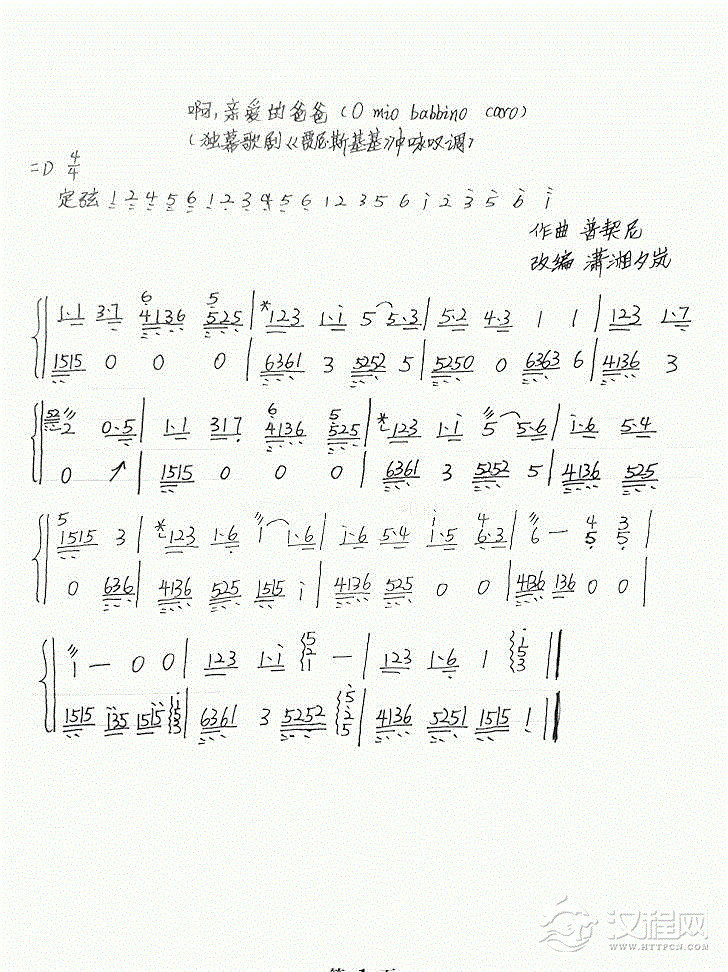 啊,亲爱的爸爸(O mio babbino caro)
(独幕歌剧《贾尼斯基基》中咏叹调)
=D 4/4
定弦 1 2 4 5 6 1 2 3 4 5 6 1 2 3 5 6 i 2 3 5 6 i
作曲 普契尼
改编 潇湘夕岚
1·1 3·7 4136 525 | *123 1·i 5 5·3 | 5·2 4·3 1 1 | 123 1·7
1515 0 0 0 | 6361 3 5252 5 | 5250 0 6363 6 | 4136 3
2 0·5 | 1·1 317 4136 525 | *123 1·i 5 5·6 | i·6 5·4
0 | 1515 0 0 0 | 6361 3 5252 5 | 4136 525
1515 3 | *123 1·6 i 1·6 | i·6 5·4 i·5 6·3 | 6 — 4 5 3 5 |
0 636 | 4136 525 1515 i | 4136 525 0 0 | 4136 136 0 0 |
i — 0 0 | 123 1·i 5 2 1 — | 123 1·6 1 i 5 3 ||
1515 i35 1515 i 5 3 | 6361 3 5252 5 2 5 | 4136 5251 1515 1 ||
汉程网
HTTPCN.COM